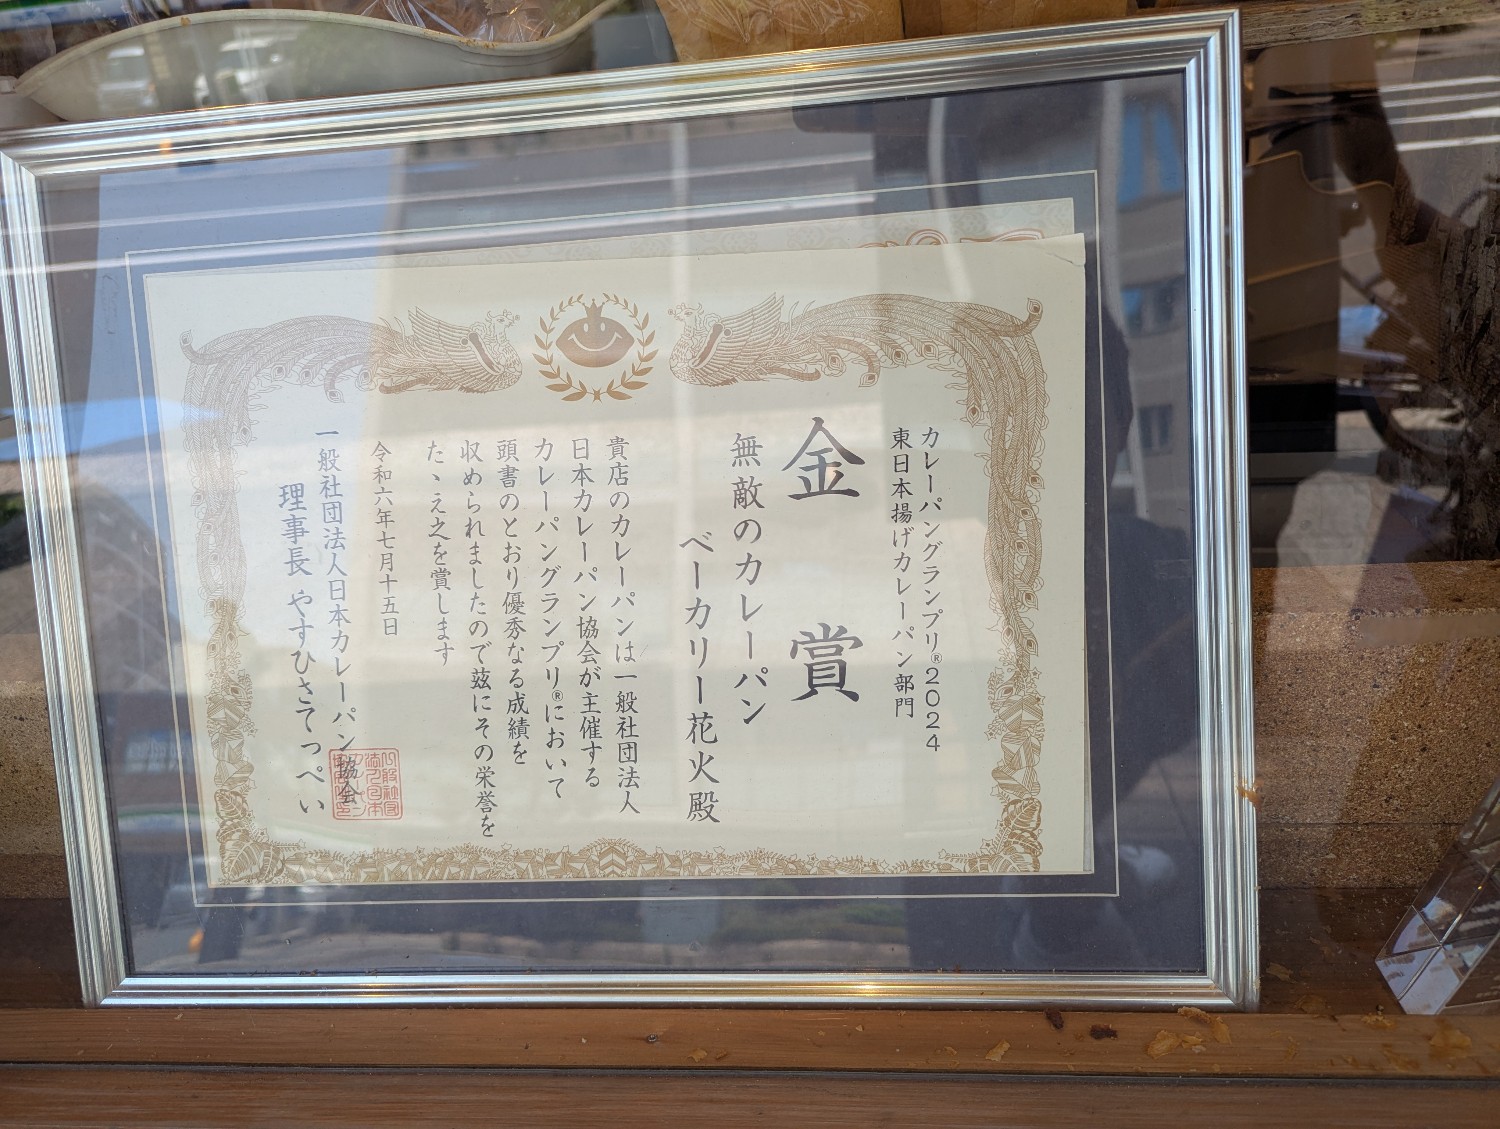 カレーパングランプリ®2024
東日本揚げカレーパン部門
金賞
無敵のカレーパン
ベーカリー花火殿
貴店のカレーパンは一般社団法人
日本カレーパン協会が主催する
カレーパングランプリ®において
頭書のとおり優秀なる成績を
収められましたので茲にその栄誉を
たゝえ之を賞します
令和六年七月十五日
一般社団法人日本カレーパン協会
理事長 やすひさてっぺい